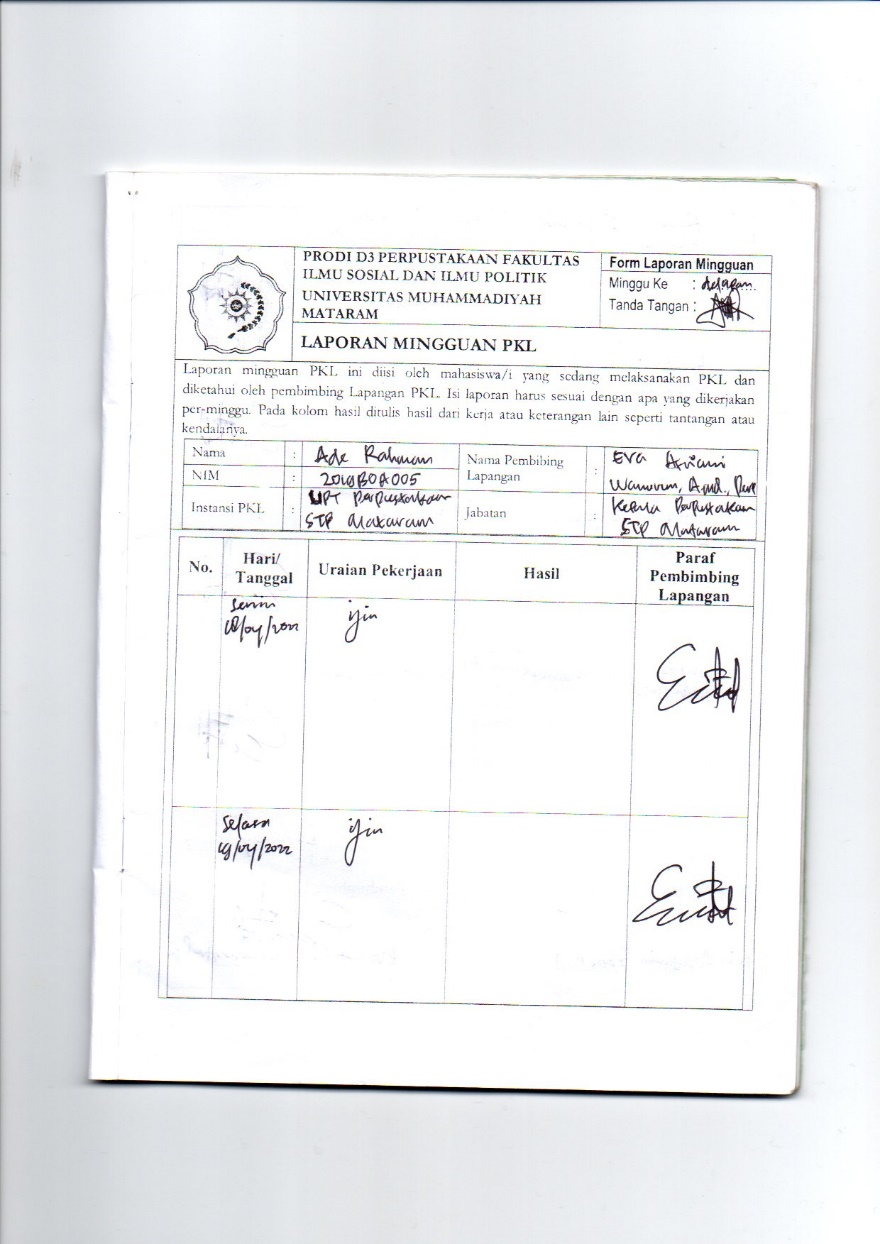 PRODI D3 PERPUSTAKAAN FAKULTAS
ILMU SOSIAL DAN ILMU POLITIK
UNIVERSITAS MUHAMMADIYAH
MATARAM
LAPORAN MINGGUAN PKL
Form Laporan Mingguan
Minggu Ke : delapan
Tanda Tangan :
Laporan mingguan PKL ini diisi oleh mahasiswa/i yang sedang melaksanakan PKL dan
diketahui oleh pembimbing Lapangan PKL. Isi laporan harus sesuai dengan apa yang dikerjakan
per-minggu. Pada kolom hasil ditulis hasil dari kerja atau keterangan lain seperti tantangan atau
kendalanya.
Nama : Ade Rahman
NIM :
Instansi PKL : UPT Perpustakaan
STP Mataram
Nama Pembibing
Lapangan : Eva Aviani
Jabatan : Kepala Perpustakaan
STP Mataram
No. Hari/ Tanggal Uraian Pekerjaan Hasil Paraf Pembimbing Lapangan
Senin
18/04/2022
ijin
Selasa
19/04/2022
ijin